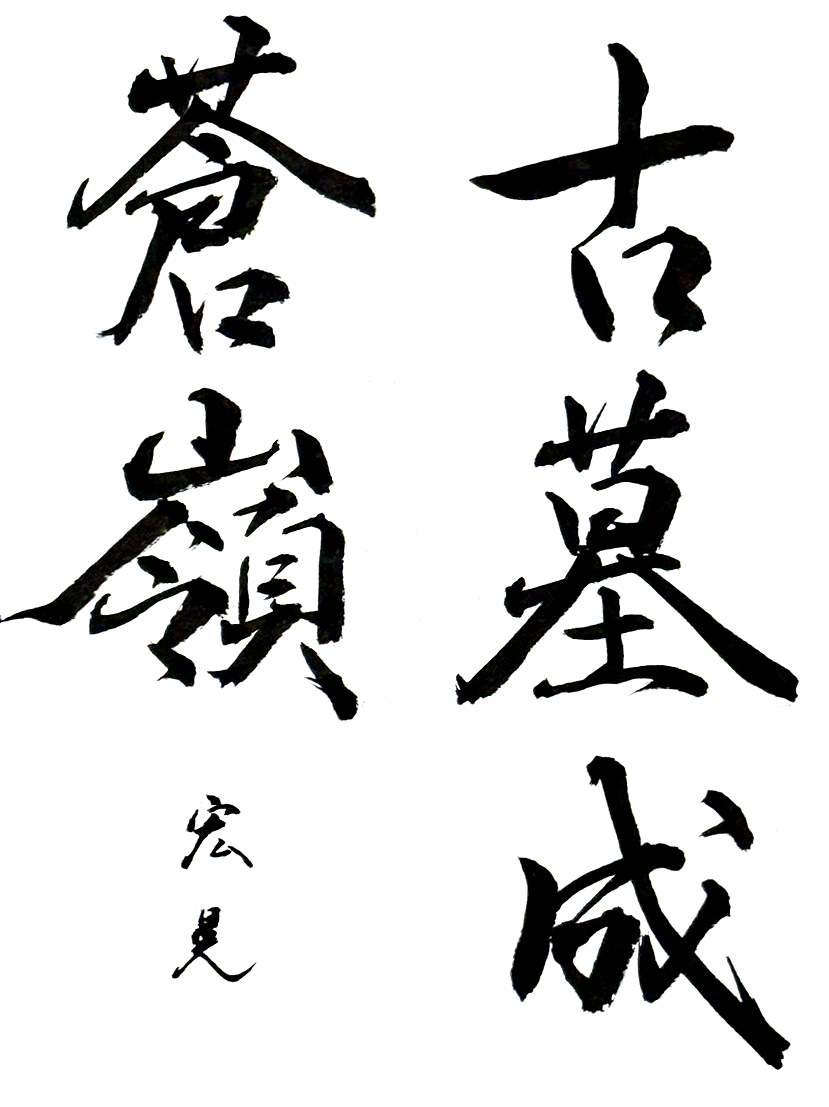 古墓成
蒼嶺
宏晃